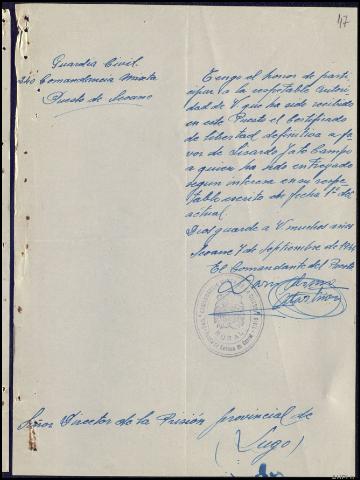 47
Guardia Civil
240 Comandancia Mixta
Puesto de Seoane
Tengo el honor de par-
ticipar a la respetable autori-
dad de V que ha sido recibido
en este Puesto el Certificado
de libertad definitiva a fa-
vor de Lisardo Jato Campo
a quien ha sido entregado
segun interesa en su respe-
table escrito de fecha 1º del
actual.
Dios guarde a V. muchos años
Seoane 7 de Septiembre de 1944
El Comandante del Puesto
Martinez
RURAL
Señor Director de la Prisión provincial de
(Lugo)